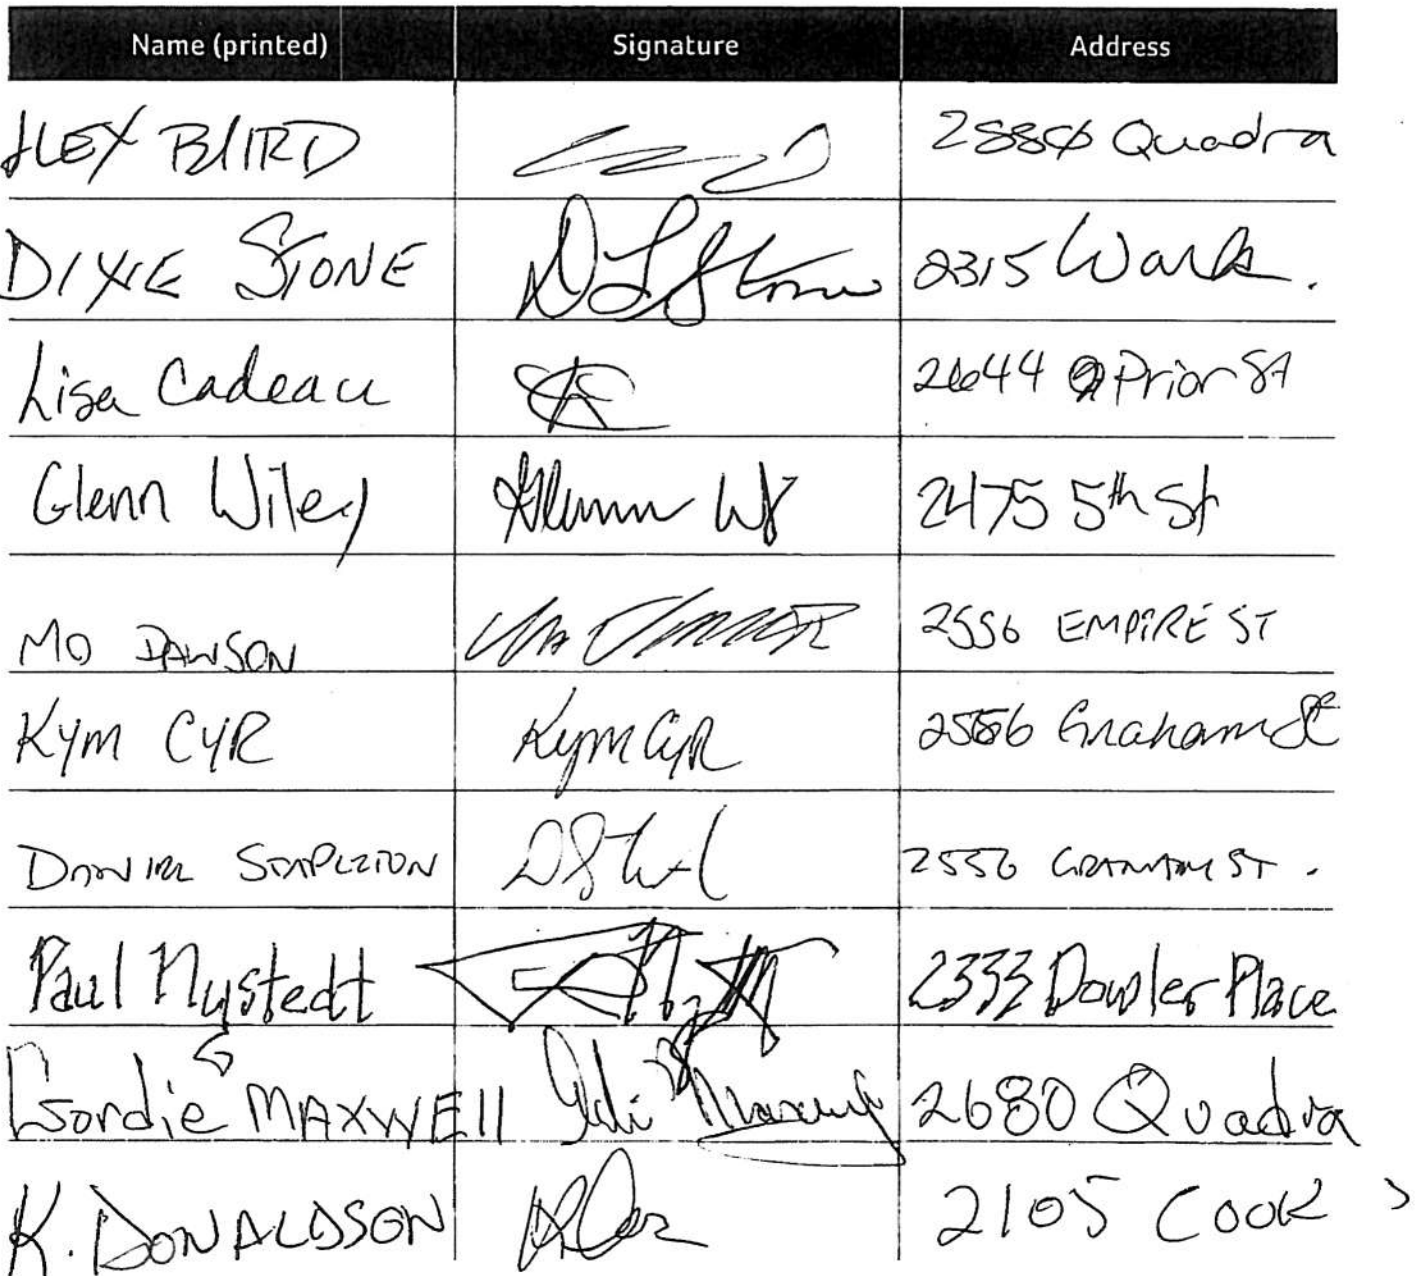 Name (printed) Signature Address
ALEX BAIRD 2880 Quadra
DIXIE STONE DL Stone 2315 Wark.
Lisa Cadeau 2644 Prior St
Glenn Wiley Glenn W 2475 5th St
MO DAWSON 2556 EMPIRE ST
Kym CYR Kym Cyr 2556 Graham St
DANIEL STAPLETON 2556 GRAHAM ST.
Paul Nystedt 2333 Dowler Place
Gordie MAXWEll 2680 Quadra
K. DONALDSON 2105 COOK